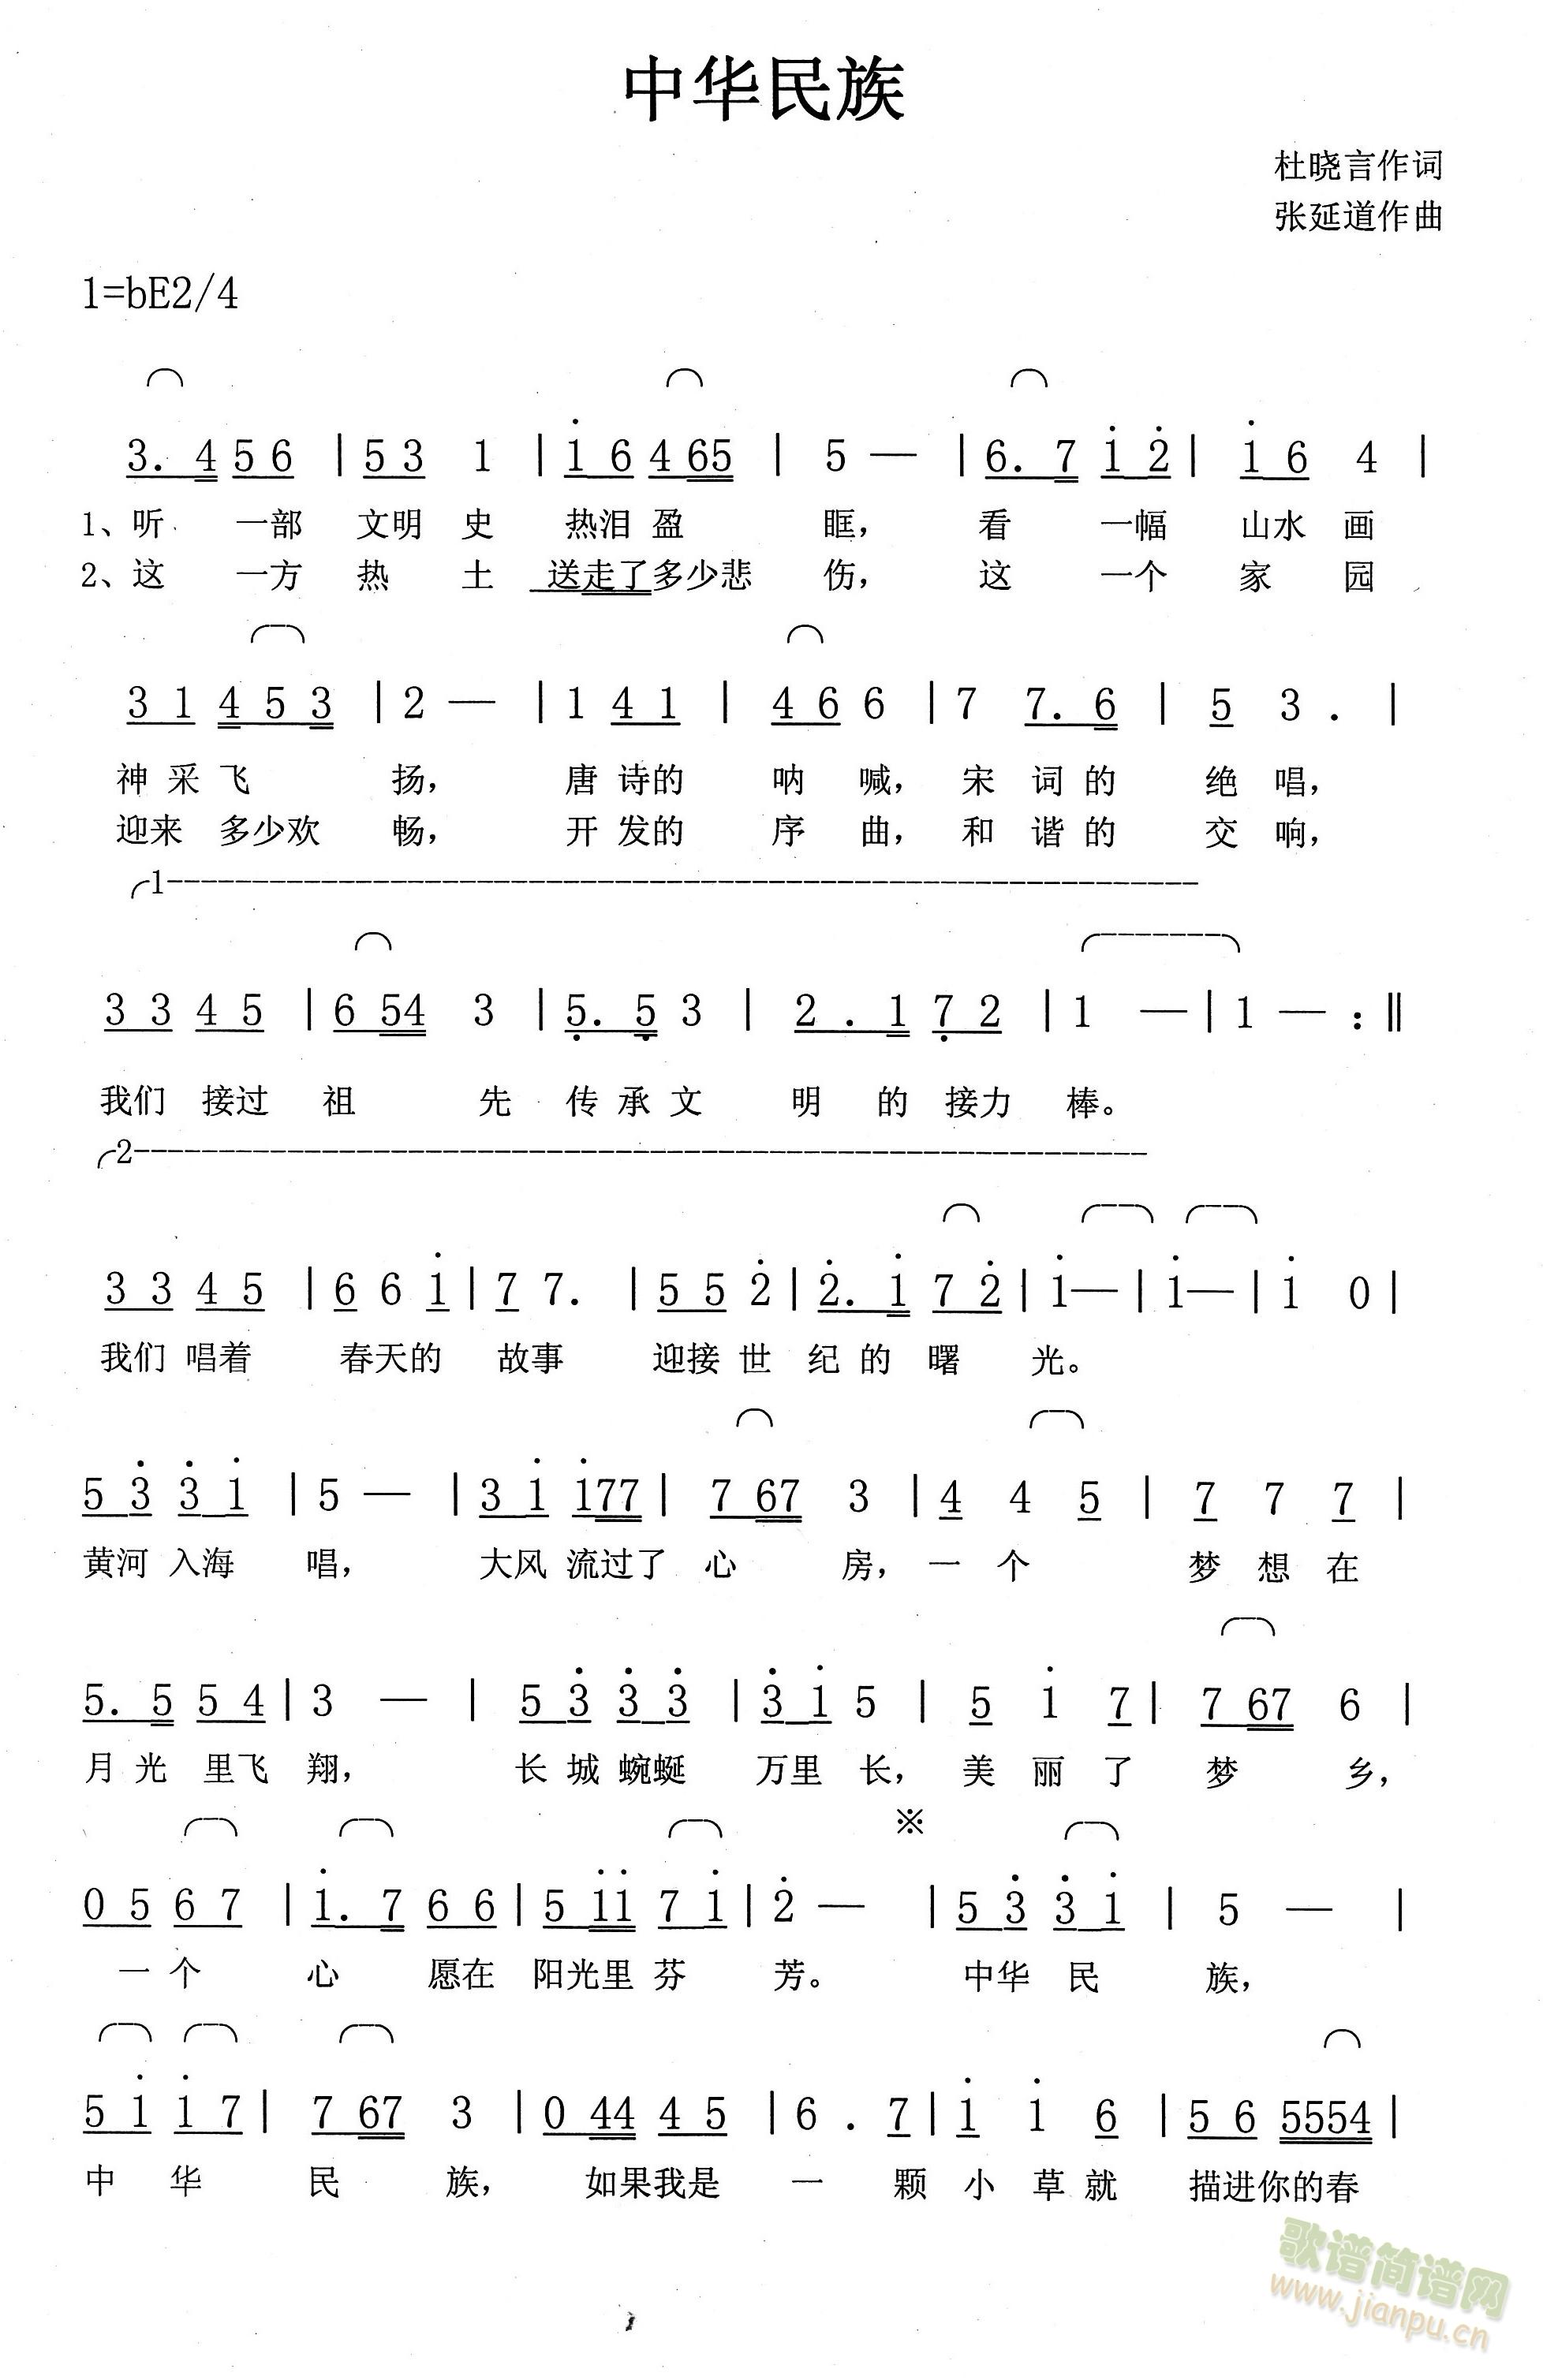 中华民族
杜晓言作词
张延道作曲
1=bE2/4
3. 4 5 6 | 5 3 1 | i 6 4 65 | 5 — | 6. 7 i 2̇ | i 6 4 |
1、听 一部 文明 史 热泪 盈 眶， 看 一幅 山水 画
2、这 一方 热 土 送走了多少悲 伤， 这 一个 家 园
3 1 4 5 3 | 2 — | 1 4 1 | 4 6 6 | 7 7. 6 | 5 3 . |
神 采 飞 扬， 唐 诗的 呐 喊， 宋 词 的 绝 唱，
迎来 多少欢 畅， 开 发的 序 曲， 和 谐 的 交 响，
1
3 3 4 5 | 6 54 3 | 5̣. 5̣ 3 | 2 . 1 7̣ 2 | 1 — | 1 — :‖
我们 接过 祖 先 传 承 文 明 的 接力 棒。
2
3 3 4 5 | 6 6 i | 7 7. | 5 5 2̇ | 2̇. i 7 2̇ | i — | i — | i 0 |
我们 唱着 春天的 故事 迎接 世 纪 的 曙 光。
5 3̇ 3̇ i | 5 — | 3 i i77 | 7 67 3 | 4 4 5 | 7 7 7 |
黄河 入海 唱， 大风 流过了 心 房， 一 个 梦 想 在
5. 5 5 4 | 3 — | 5 3̇ 3̇ 3̇ | 3̇ i 5 | 5 i 7 | 7 67 6 |
月 光 里飞 翔， 长 城 蜿蜒 万里 长， 美 丽 了 梦 乡，
※
0 5 6 7 | i. 7 6 6 | 5 ii 7 i | 2̇ — | 5 3̇ 3̇ i | 5 — |
一 个 心 愿在 阳光里 芬 芳。 中华 民 族，
5 i i 7 | 7 67 3 | 0 44 4 5 | 6 . 7 | i i 6 | 5 6 5554 |
中 华 民 族， 如果我是 一 颗 小 草 就 描进你的春
歌谱简谱网
www.jianpu.cn